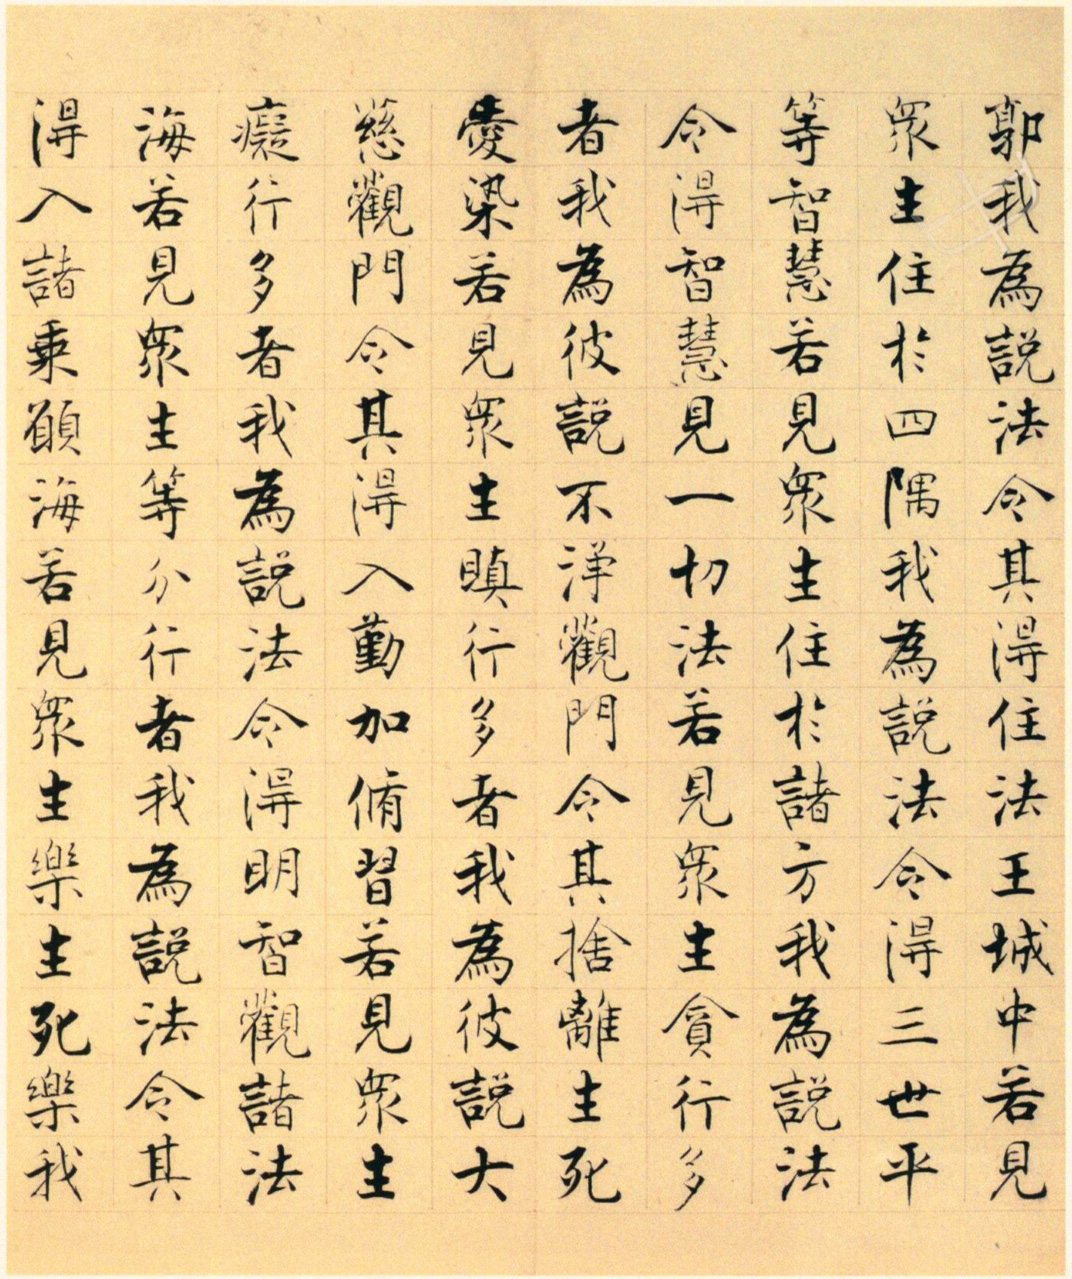 郭我為説法令其得住法王城中若見
衆生住於四隅我為説法令得三世平
等智慧若見衆生住於諸方我為説法
令得智慧見一切法若見衆生貪行多
者我為彼説不淨觀門令其捨離生死
愛染若見衆生瞋行多者我為彼説大
慈觀門令其得入勤加脩習若見衆生
癡行多者我為説法令得明智觀諸法
海若見衆生等分行者我為説法令其
得入諸乗願海若見衆生樂生死樂我